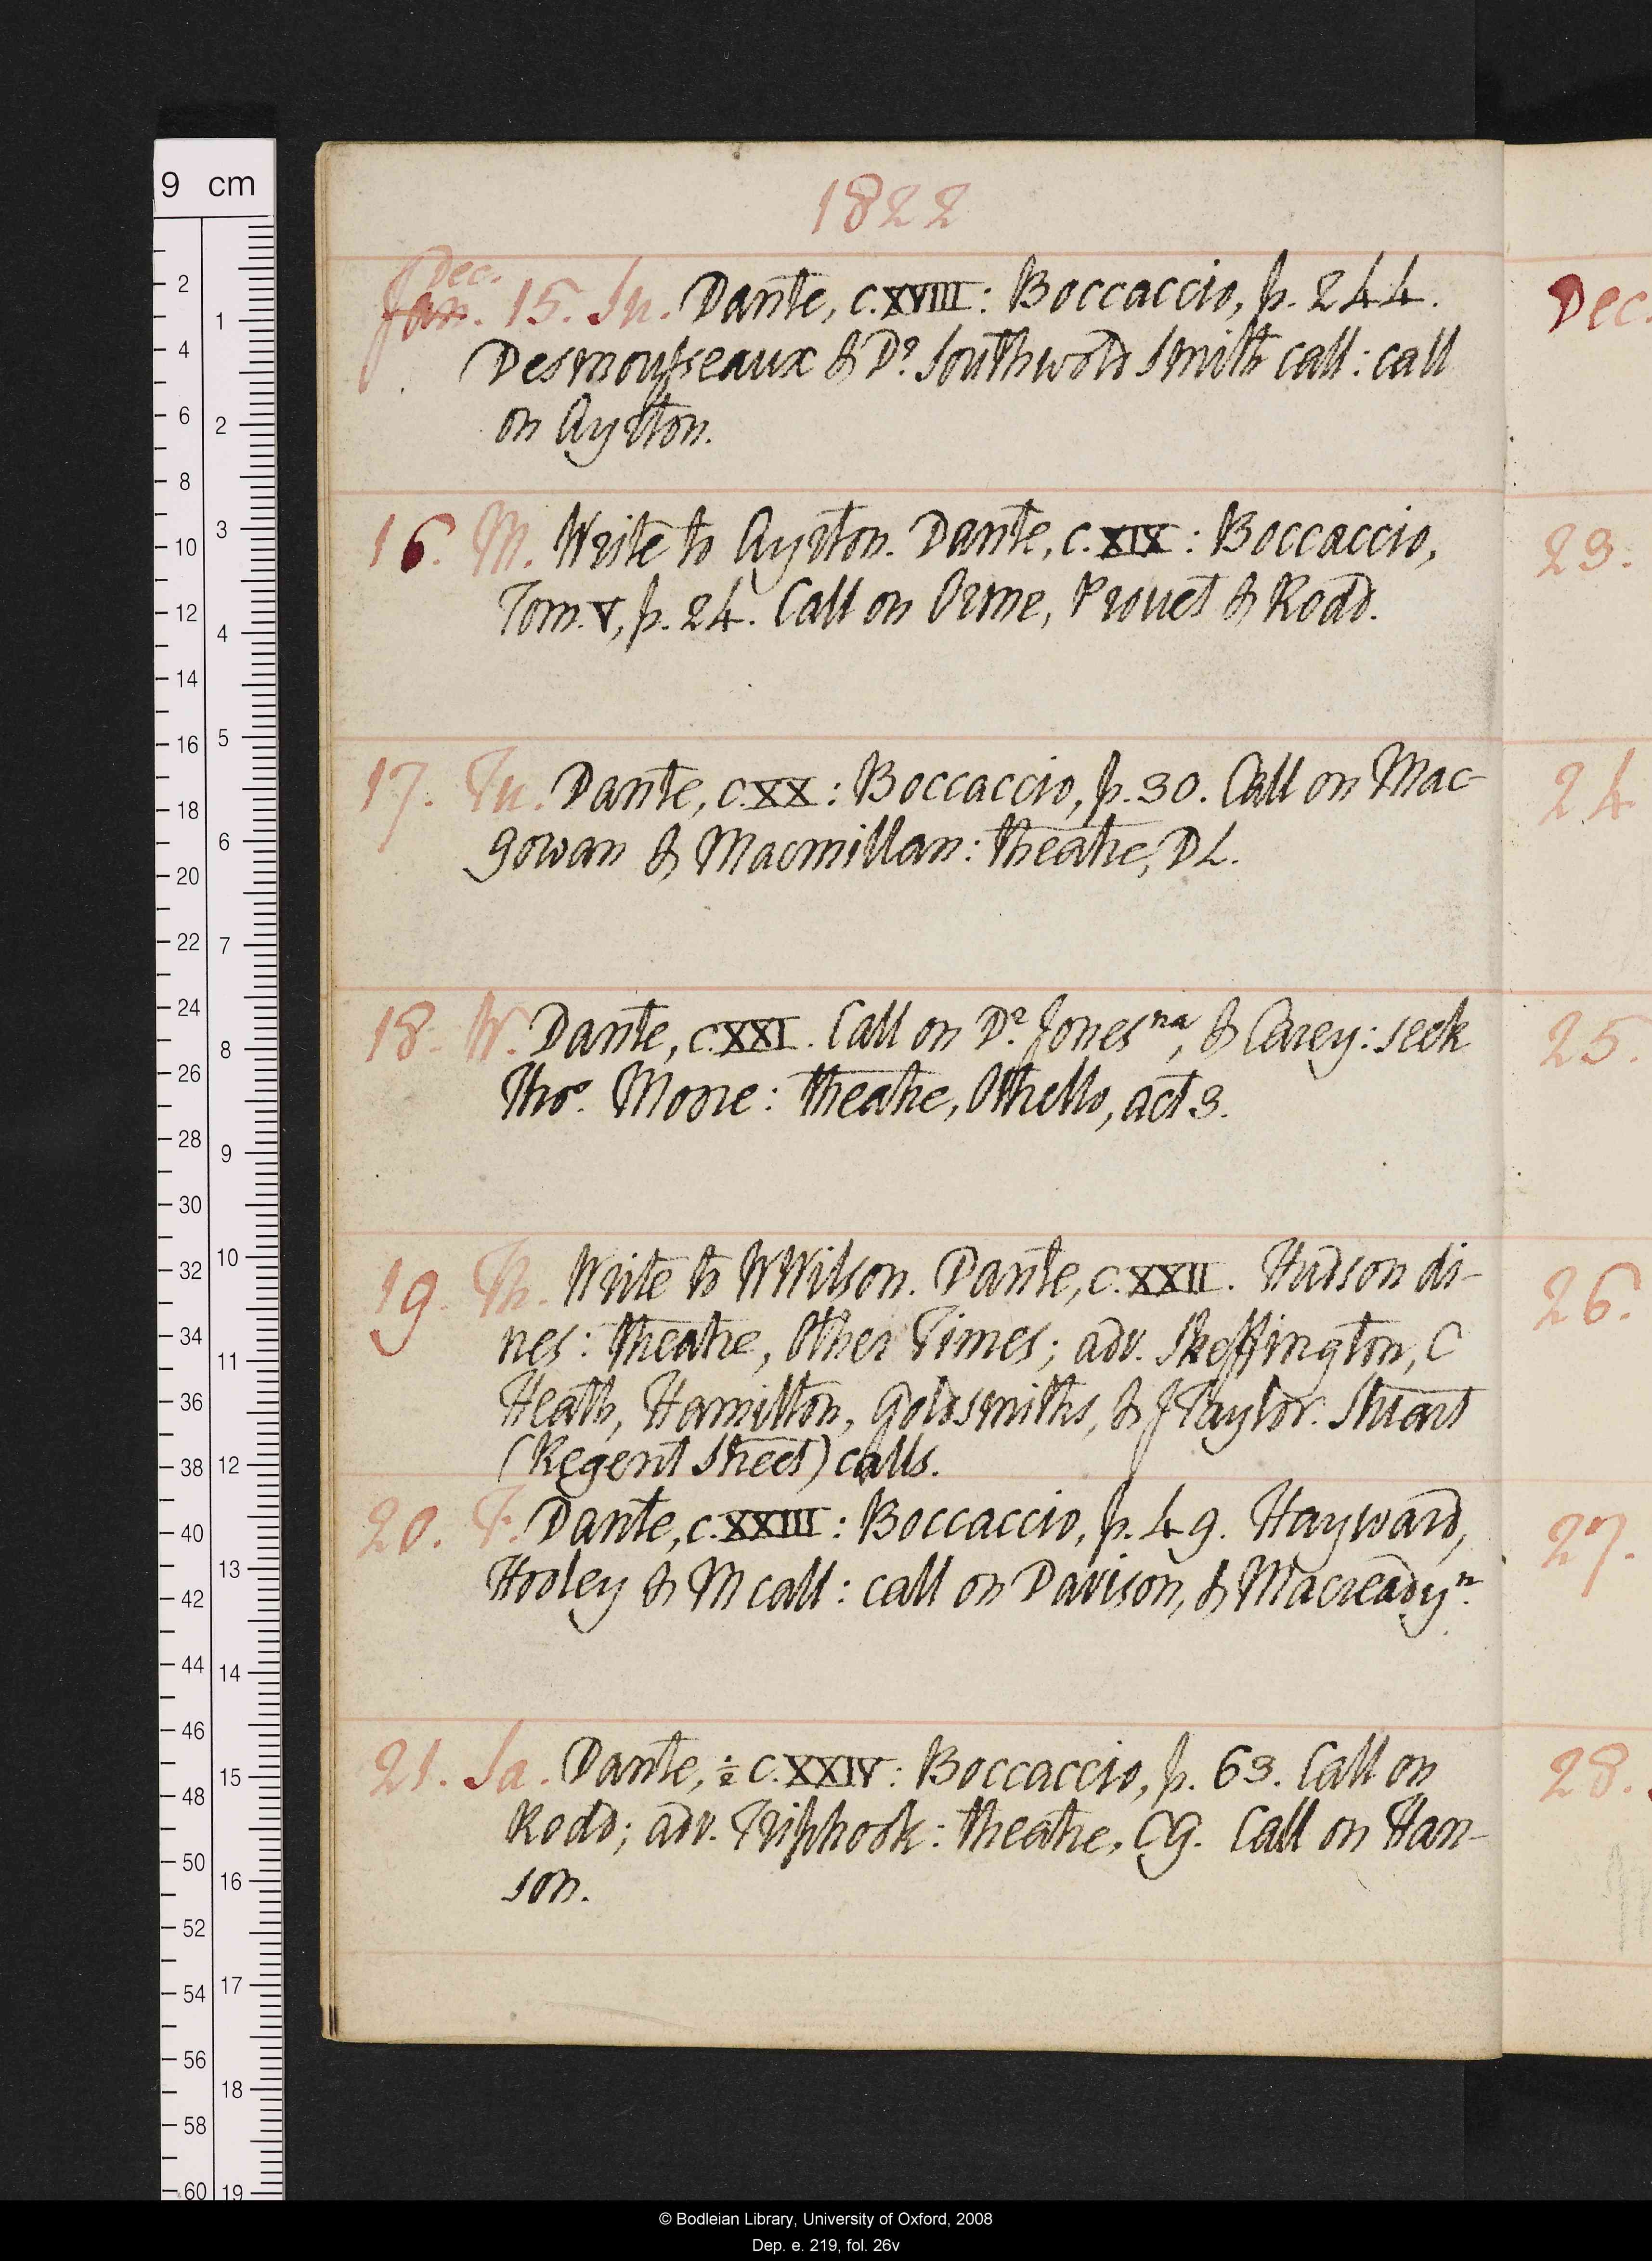 1822
Dec.
Jan. 15. Su. Dante, c. XVIII: Boccaccio, p. 244.
Desmoysseaux & Dr. Southwood Smith call: call
on Ayrton.
16. M. Write to Ayrton. Dante, c. XIX: Boccaccio,
Tom. V, p. 24. Call on Orme, Prouet & Rodd.
17. Tu. Dante, c. XX: Boccaccio, p. 30. Call on Mac-
gowan & Macmillan: theatre, DL.
18. W. Dante, c. XXI. Call on Dr. Jones na, & Carey: seek
Thos. Moore: theatre, Othello, act 3.
19. Th. Write to W Wilson. Dante, c. XXII. Hudson di-
nes: theatre, Other Times; adv. Skeffington, C
Heath, Hamilton, Goldsmiths, & J Taylor. Stuart
(Regent Street) calls.
20. F. Dante, c. XXIII: Boccaccio, p. 49. Hayward,
Hooley & M call: call on Davison, & Macready n.
21. Sa. Dante, ½ c. XXIV: Boccaccio, p. 63. Call on
Rodd; adv. Triphook: theatre, CG. Call on Han-
son.
Dec.
23.
24
25.
26.
27.
28.
9 cm
2 4 6 8 10 12 14 16 18 20 22 24 26 28 30 32 34 36 38 40 42 44 46 48 50 52 54 56 58 60
1 2 3 4 5 6 7 8 9 10 11 12 13 14 15 16 17 18 19
© Bodleian Library, University of Oxford, 2008
Dep. e. 219, fol. 26v